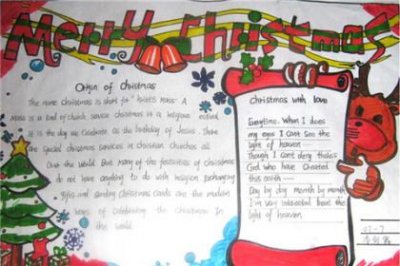 Merry Christmas
Origin of christmas
The name christmas is short for "
Mass is a kind of church service christmas is a religious
It is the day we celebrate as the birthday of Jesus. There
are special christmas services in christian churches all
the world But many of the festivities of christmas
do not have anything to do with religion
gifts and sending christmas cards are the modern
ways of celebrating the christmas In
the world.
Christmas with love
Everytime. When I
my eyes I can't see the
light of heaven
Though I can't deny that
God who have created
this earth
Day by day month by month
I'm very the
light of heaven